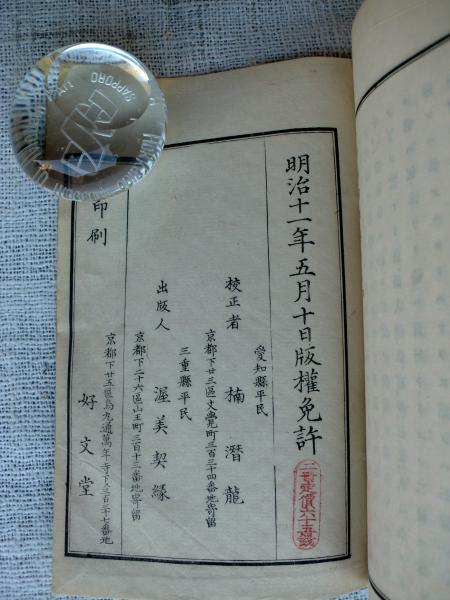 明治十一年五月十日版權免許
愛知縣平民
校正者 楠潛龍
京都下廿三區文覺町三百三十四番地寄留
三重縣平民
出版人 渥美契縁
京都下二十六區山王町三百十三番地寄留
印刷
京都下廿五區烏丸通萬年寺下三百三十七番地
好文堂
定價六十五錢
SAPPORO